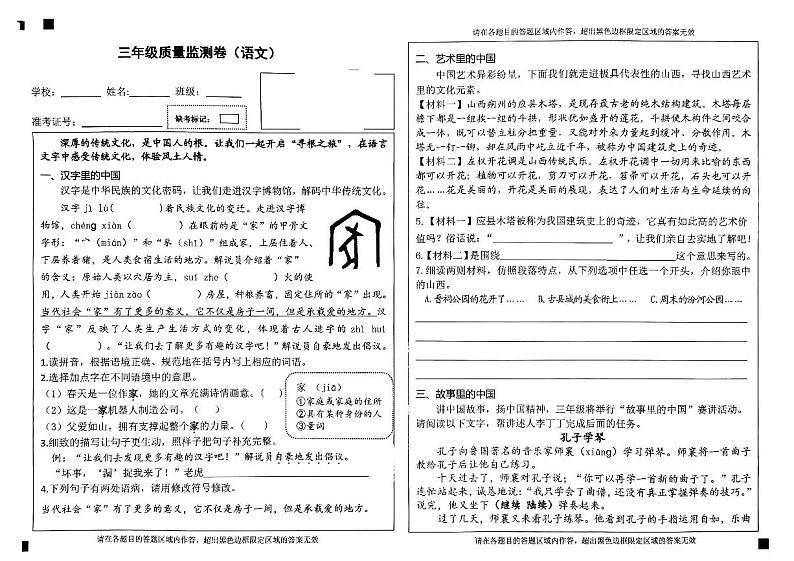 三年级质量监测卷（语文）
学校：________ 姓名：________ 班级：________
准考证号：________ 缺考标记：
深厚的传统文化，是中国人的根。让我们一起开启“寻根之旅”，在语言
文字中感受传统文化，体验风土人情。
一、汉字里的中国
汉字是中华民族的文化密码，让我们走进汉字博物馆，解码中华传统文化。
汉字 jì lù（ ）着民族文化的变迁。走进汉字博
物馆，chéng xiàn（ ）在眼前的是“家”的甲骨文
字形：“宀（mián）”和“豕（shǐ）”组成家，上层住着人、
下层养着猪，是人类食宿生活的地方。解说员介绍着“家”
的含义：原始人类以穴居为主，suí zhe（ ）火的使
用，人类开始 jiàn zào（ ）房屋，种粮养畜，固定住所的“家”出现。
当代社会“家”有了更多的意义，它不仅是房子一间，但是承载爱的地方。汉
字“家”反映了人类生产生活方式的变化，体现着古人造字的 zhì huì
（ ）。“让我们去了解更多有趣的汉字吧！”解说员自豪地发出倡议。
1.读拼音，根据语境正确、规范地在括号内写上相应的词语。
2.选择加点字在不同语境中的意思。
（1）春天是一位作家，她的文章充满诗情画意。（ ）
（2）这是一家机器人制造公司。（ ）
（3）父爱如山，拥有支撑起整个家的力量。（ ）
家（jiā）
①家庭或家庭的住所
②具有某种身份的人
③量词
3.细致的描写让句子更生动，照样子把句子补充完整。
例：“让我们去发现更多有趣的汉字吧！”解说员自豪地发出倡议。
“坏事，‘漏’捉我来了！”老虎________________
4.下列句子有两处语病，请用修改符号修改。
当代社会“家”有了更多的意义，它不仅是房子一间，但是承载爱的地方。
请在各题目的答题区域内作答，超出黑色边框限定区域的答案无效
请在各题目的答题区域内作答，超出黑色边框限定区域的答案无效
二、艺术里的中国
中国艺术异彩纷呈，下面我们就走进极具代表性的山西，寻找山西艺术
里的文化元素。
【材料一】山西朔州的应县木塔，是现存最古老的纯木结构建筑。木塔每层
檐下都是一组挨一组的斗拱，形状犹如盛开的莲花。斗拱使木构件之间咬合
成一体，既可以替立柱分担重量，又能对外来力量起到缓冲、分散作用。木
塔无一钉一铆，却在风雨中屹立近千年，被称为中国建筑史上的奇迹。
【材料二】左权开花调是山西传统民乐。左权开花调中一切用来比喻的东西
都可以开花：植物可以开花，剪刀可以开花，笤帚可以开花，石头也可以开
花……花是美丽的，开花是美丽的展现，表达了人们对生活与生命延续的向
往。
5.【材料一】应县木塔被称为我国建筑史上的奇迹，它真有如此高的艺术价
值吗？俗话说：“________________”，让我们亲自去实地了解吧！
6.【材料二】是围绕________________这个意思来写的。
7.细读两则材料，仿照段落特点，从下列选项中任选一个开头，介绍你眼中
的山西。
A.晋祠公园的花开了…… B.古县城的美食街上…… C.周末的汾河公园……
三、故事里的中国
讲中国故事，扬中国精神，三年级将举行“故事里的中国”赛讲活动。
请阅读以下文字，帮讲述人李丁丁完成后面的任务。
孔子学琴
孔子向鲁国著名的音乐家师襄（xiāng）学习弹琴。师襄将一首曲子
教给孔子后让他自己练习。
十天过去了，师襄对孔子说：“你可以再学一首新的曲子了。”孔子
连忙站起来，诚恳地说：“我只学会了曲谱，还没有真正掌握弹奏的技巧。”
说完，他又坐下（继续 陆续）弹奏起来。
过了几天，师襄又来看孔子练琴。他看到孔子的手指运用自如，乐曲
请在各题目的答题区域内作答，超出黑色边框限定区域的答案无效